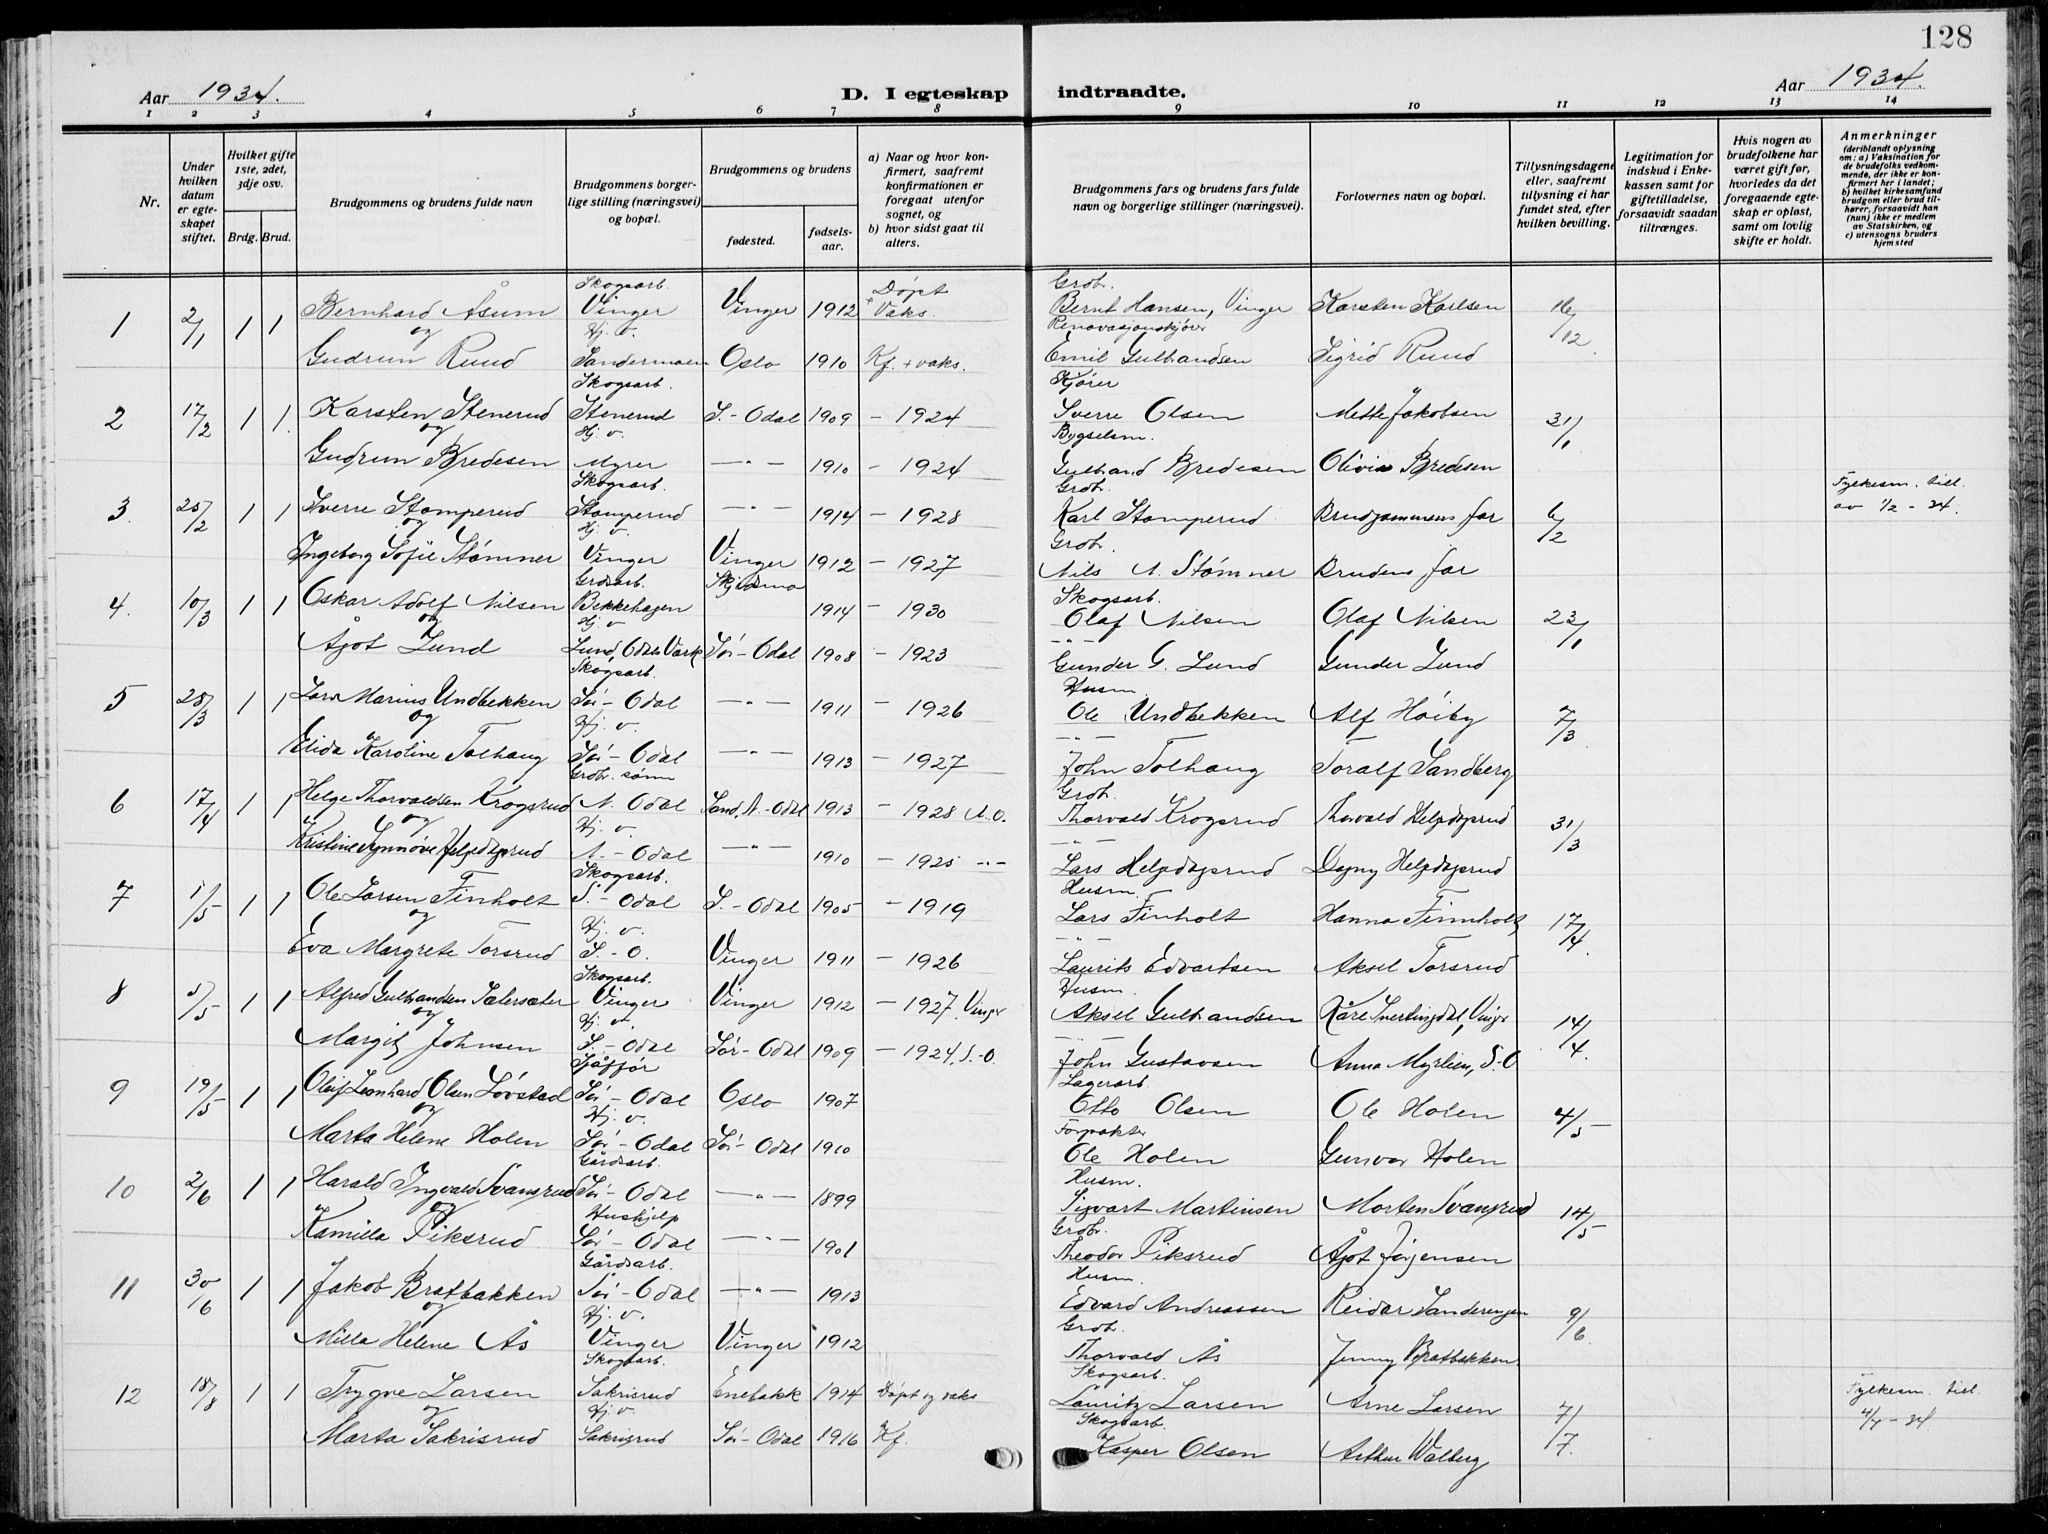 128
Aar 1934.
D. I egteskap indtraadte.
Aar 1934.
1 2 3 4 5 6 7 8 9 10 11 12 13 14
Nr.
Under hvilken datum er egteskapet stiftet.
Hvilket gifte 1ste, 2det, 3dje osv.
Brdg. Brud.
Brudgommens og brudens fulde navn
Brudgommens borgerlige stilling (næringsvei) og bopæl.
Brudgommens og brudens
fødested.
fødselsaar.
a) Naar og hvor konfirmert, saafremt konfirmationen er foregaat utenfor sognet, og
b) hvor sidst gaat til alters.
Brudgommens fars og brudens fars fulde navn og borgerlige stillinger (næringsvei).
Forlovernes navn og bopæl.
Tillysningsdagene eller, saafremt tillysning ei har fundet sted, efter hvilken bevilling.
Legitimation for indskud i Enkekassen samt for giftetilladelse, forsaavidt saadan tiltrænges.
Hvis nogen av brudefolkene har været gift før, hvorledes da det foregaaende egteskap er opløst, samt om lovlig skifte er holdt.
Anmerkninger
(deriblandt oplysning om: a) Vaksination for de brudefolks vedkommende, der ikke er konfirmert her i landet;
b) hvilket kirkesamfund brudgom eller brud tilhører, forsaavidt han (hun) ikke er medlem av Statskirken, og
c) utensogns bruders hjemsted
Skogsarb. Døpt Grdbr.
1 2/1 1 1 Bernhard Åsum Vinger Vinger 1912 + Vaks. Bernt Hansen, Vinger Karsten Karlsen 16/12
og Hj. v. Renovasjonskjører
Gudrun Ruud Sandermoen Oslo 1910 Kf. + vaks. Emil Gulbandsen Sigrid Ruud
Skogsarb. Kjører
2 17/2 1 1. Karsten Stenerud Stenerud S.-Odal 1909 - 1924 Sverre Olsen Mette Jakobsen 31/1
og Hj. v. Bygselsm.
Gudrun Bredesen Myrer -"- 1910 - 1924 Gulbrand Bredesen Olivia Bredesen
Skogsarb. Grdbr. Fylkesm. till.
3. 25/2 1 1 Sverre Stomperud Stomperud -"- 1914 - 1928 Karl Stomperud Brudgommens far 6/2 av 1/2 - 34.
og Hj. v. Grdbr.
Ingeborg Sofie Stømner Vinger Vinger 1912 - 1927 Nils N. Stømner Brudens far
Grdsarb. Skjedsmo Skogsarb.
4. 10/3 1 1 Oskar Adolf Nilsen Bekkehagen 1914 - 1930 Olaf Nilsen Olaf Nilsen 23/1
og Hj. v. -"-
Ågot Lund Lund, Odals Verk Sør-Odal 1908 - 1923 Gunder G. Lund Gunder Lund
Skogsarb. Husm.
5 28/3 1 1 Lars Marius Undbekken Sør-Odal -"- 1911 - 1926 Ole Undbekken Alf Høiby 7/3
og Hj. v. -"-
Elida Karoline Tolhaug Sør-Odal -"- 1913 - 1927 John Tolhaug Toralf Sandberg
Grdbr. sønn Grdbr.
6 17/4 1 1 Helge Thorvaldsen Krogsrud N. Odal Sand, N.-Odal 1913 - 1928 N.O. Thorvald Krogsrud Thorvald Helgdagsrud 31/3
og Hj. v. -"-
Kristine Synnøve Helgdagsrud N.-Odal -"- 1910 - 1925 -"- Lars Helgdagsrud Dagny Helgdagsrud
Skogsarb. Husm.
7 1/5 1 1 Ole Larsen Finholt S.-Odal S.-Odal 1905 - 1919 Lars Finholt Hanna Finnholt 17/4
og Hj. v. -"-
Eva Margrete Torsrud S.-O. Vinger 1911 - 1926 Laurits Edvartsen Aksel Torsrud
Skogsarb. Husm.
8 5/5 1 1 Alfred Gulbrandsen Sætersæter Vinger Vinger 1912 - 1927, Vinger Aksel Gulbrandsen Kåre Svertingdal, Vinger 14/4
og Hj. v. -"-
Margit Johnsen S.-Odal Sør-Odal 1909 - 1924, S.-O John Gustavsen Anna Myrlien, S.-O
Sjåffør Lagerarb.
9 19/5 1 1 Oleif Leonhard Olsen Løvstad Sør-Odal Oslo 1907 Otto Olsen Ole Holen 4/5
og Hj. v. Forpakter
Marta Helene Holen Sør-Odal Sør-Odal 1910 Ole Holen Gunvor Holen
Gårdsarb. Husm.
10 2/6 1 1 Harald Ingvald Svansrud Sør-Odal -"- 1899 Sigvart Martinsen Morten Svansrud 14/5
og Hushjelp Grdbr.
Kamilla Piksrud Sør-Odal -"- 1901 Theodor Piksrud Ågot Jørgensen
Gårdsarb. Husm.
11 30/6 1 1 Jakob Bratbakken Sør-Odal -"- 1913 Edvard Andreassen Reidar Sanderengen 9/6
og Hj. v. Grdbr.
Milla Helene Ås Vinger Vinger 1912 Thorvald Ås Jenny Bratbakken
Skogsarb. Skogsarb. Fylkesm. till.
12 18/8 1 1 Trygve Larsen Sakrisrud Enebakk 1914 Døpt og vaks Lauritz Larsen Arne Larsen 7/7. 4/7 - 34.
og Hj. v. Skogsarb.
Marta Sakrisrud Sakrisrud Sør-Odal 1916 Kf. Kasper Olsen Arthur Walberg